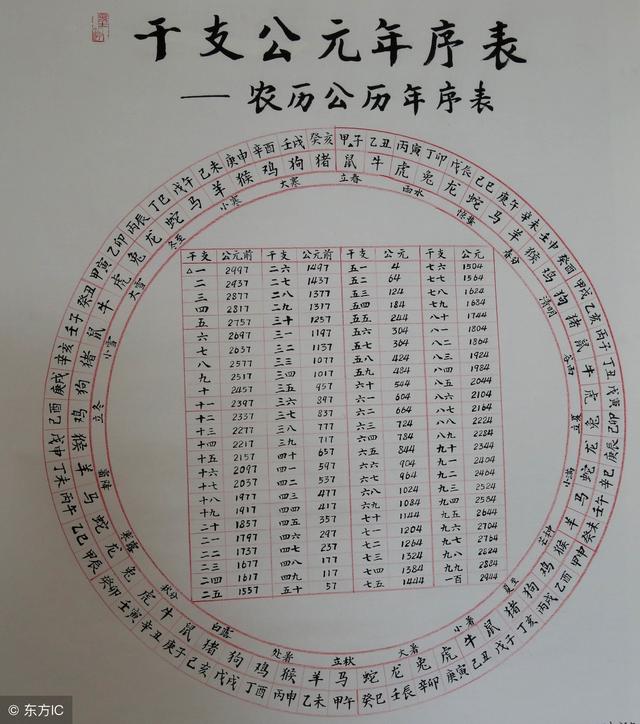 干支公元年序表
— 农历公历年序表
甲子 乙丑 丙寅 丁卯 戊辰 己巳 庚午 辛未 壬申 癸酉 甲戌 乙亥 丙子 丁丑 戊寅 己卯 庚辰 辛巳 壬午 癸未 甲申 乙酉 丙戌 丁亥 戊子 己丑 庚寅 辛卯 壬辰 癸巳 甲午 乙未 丙申 丁酉 戊戌 己亥 庚子 辛丑 壬寅 癸卯 甲辰 乙巳 丙午 丁未 戊申 己酉 庚戌 辛亥 壬子 癸丑 甲寅 乙卯 丙辰 丁巳 戊午 己未 庚申 辛酉 壬戌 癸亥
鼠 牛 虎 兔 龙 蛇 马 羊 猴 鸡 狗 猪 鼠 牛 虎 兔 龙 蛇 马 羊 猴 鸡 狗 猪 鼠 牛 虎 兔 龙 蛇 马 羊 猴 鸡 狗 猪 鼠 牛 虎 兔 龙 蛇 马 羊 猴 鸡 狗 猪 鼠 牛 虎 兔 龙 蛇 马 羊 猴 鸡 狗 猪
立春 雨水 惊蛰 春分 清明 谷雨 立夏 小满 芒种 夏至 小暑 大暑 立秋 处暑 白露 秋分 寒露 霜降 立冬 小雪 大雪 冬至 小寒 大寒
干支 公元前 干支 公元前 干支 公元 干支 公元
△一 2997 二六 1497 五一 4 七六 1504
二 2937 二七 1437 五二 64 七七 1564
三 2877 二八 1377 五三 124 七八 1624
四 2817 二九 1317 五四 184 七九 1684
五 2757 三十 1257 五五 244 八十 1744
六 2697 三一 1197 五六 304 八一 1804
七 2637 三二 1137 五七 364 八二 1864
八 2577 三三 1077 五八 424 八三 1924
九 2517 三四 1017 五九 484 八四 1984
十 2457 三五 957 六十 544 八五 2044
十一 2397 三六 897 六一 604 八六 2104
十二 2337 三七 837 六二 664 八七 2164
十三 2277 三八 777 六三 724 八八 2224
十四 2217 三九 717 六四 784 八九 2284
十五 2157 四十 657 六五 844 九十 2344
十六 2097 四一 597 六六 904 九一 2404
十七 2037 四二 537 六七 964 九二 2464
十八 1977 四三 477 六八 1024 九三 2524
十九 1917 四四 417 六九 1084 九四 2584
二十 1857 四五 357 七十 1144 九五 2644
二一 1797 四六 297 七一 1204 九六 2704
二二 1737 四七 237 七二 1264 九七 2764
二三 1677 四八 177 七三 1324 九八 2824
二四 1617 四九 117 七四 1384 九九 2884
二五 1557 五十 57 七五 1444 一百 2944
东方IC